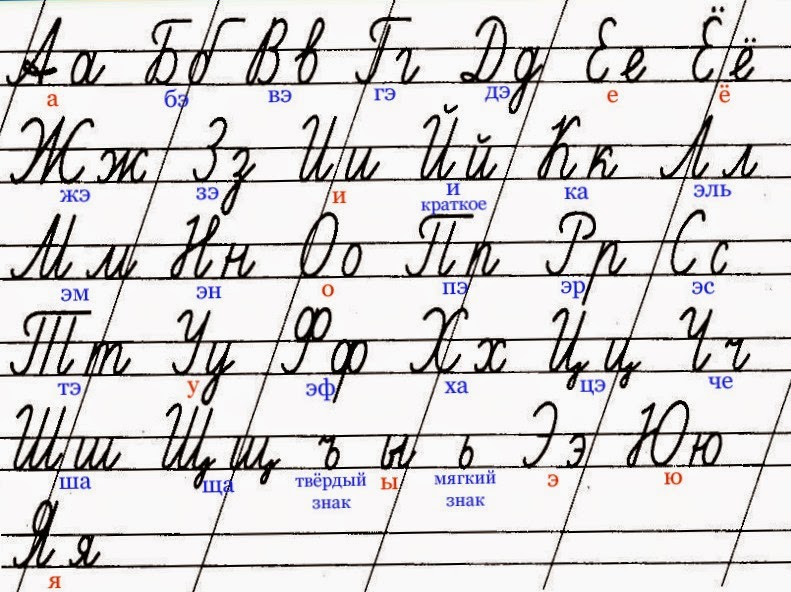 Аа Бб Вв Гг Дд Ее Ёё
а бэ вэ гэ дэ е ё
Жж Зз Ии Йй Кк Лл
жэ зэ и и краткое ка эль
Мм Нн Оо Пп Рр Сс
эм эн о пэ эр эс
Тт Уу Фф Хх Цц Чч
тэ у эф ха цэ че
Шш Щщ ъ ы ь Ээ Юю
ша ща твёрдый знак ы мягкий знак э ю
Яя
я